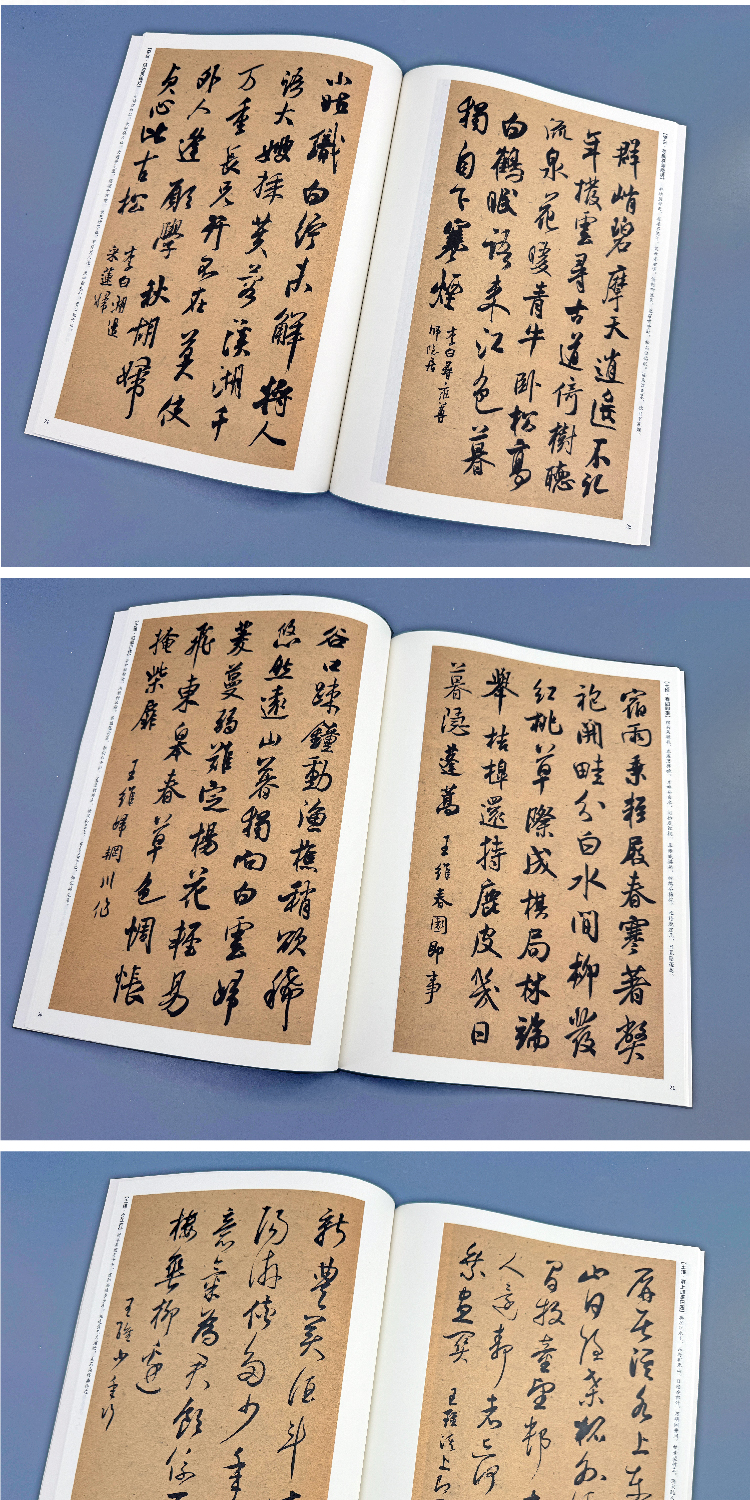 群峭碧摩天逍遥不記
年撥雲尋古道倚樹聽
流泉花暖青牛卧松高
白鶴眠語來江色暮
獨自下寒煙 李白尋雍尊
師隱居
小姑織白紵未解將人
語大嫂採芙蓉溪湖千
万重長兄行不在莫使
外人逢願學秋胡婦
貞心比古松 李白湖邊
采蓮婦
75
宿雨乘輕屐春寒著弊
袍開畦分白水間柳發
紅桃草際成棋局林端
舉桔槔還持鹿皮几日
暮隱蓬蒿 王維春園即事
谷口踈鐘動漁樵稍欲稀
悠然遠山暮獨向白雲歸
菱蔓弱難定楊花輕易
飛東皋春草色惆悵
掩柴扉 王維歸輞川作
21
屏居淇水上東
山日隱桑柘外
閭牧童望邨
人還靜者亦何
乘晝關 王維淇上即
新豐美酒斗
陽游俠多少年
意氣為君飲係
樓垂柳邊
王維少年行